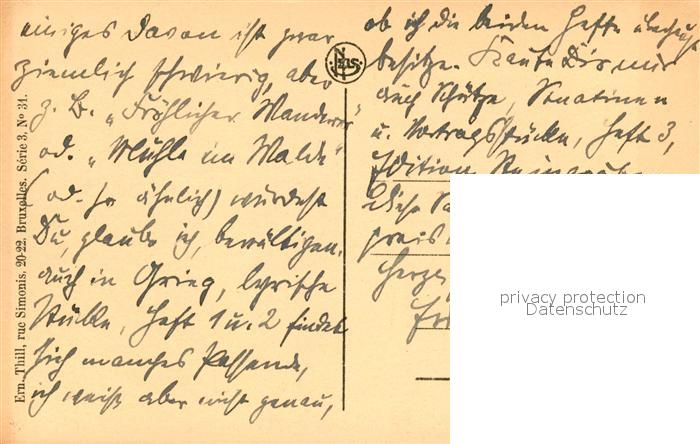 einiges davon ist zwar
ziemlich schwierig, aber
z. B. „Fröhlicher Wanderer"
od. „Mühle im Walde"
(od. so ähnlich) würdest
Du, glaube ich, bewältigen.
Auch in Grieg, lyrische
Stücke, Heft 1 u. 2 findet
sich manches Passende,
ich weiß aber nicht genau,
ob ich die beiden Hefte überhaupt
besitze. Kaufe Dir mir
auch Schütze, Sonatinen
u. Vortragsstücke, Heft 3,
Edition Steingräber
Diese
preis
Herzl
Ern. Thill, rue Simonis, 20-22, Bruxelles. Série 3, No 31.
privacy protection
Datenschutz